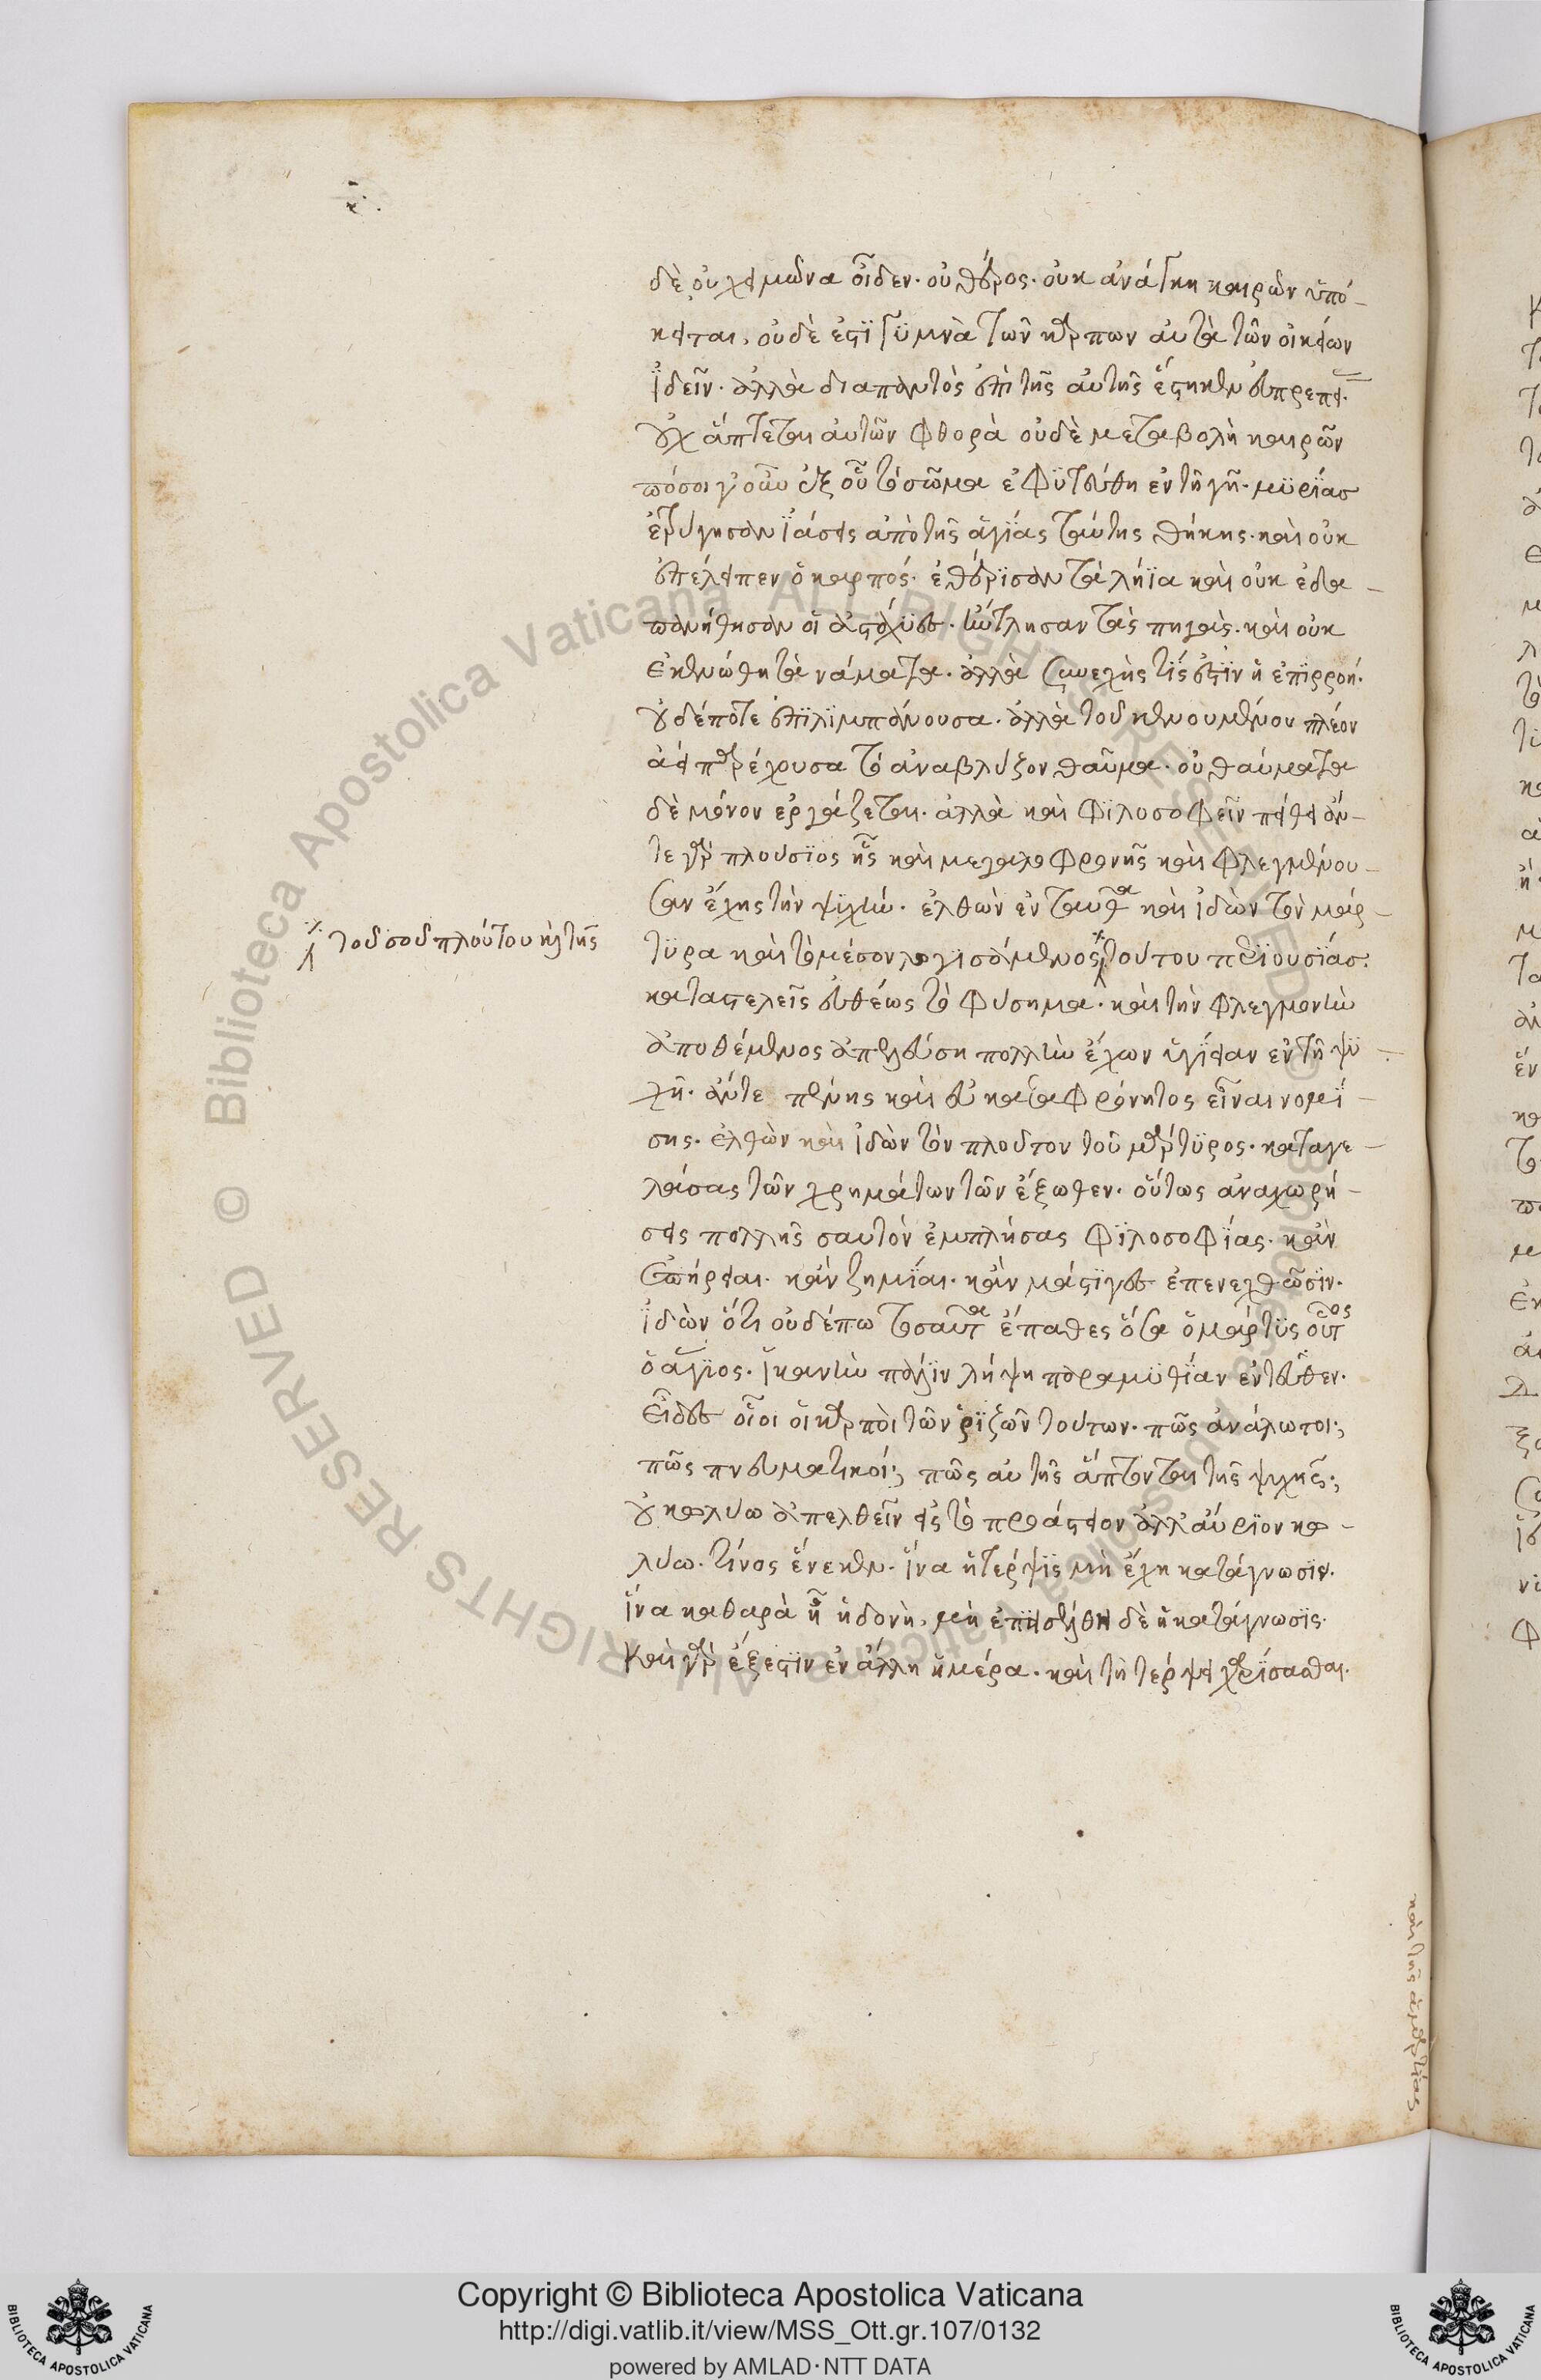 δὲ οὐ χειμῶνα οἶδεν· οὐ θέρος· οὐκ ἀνάγκη καιρῶν ὑπό-
κειται, οὐδὲ ἐστὶ γυμνὰ τῶν καρπων αὐτὰ τῶν οἰκείων
ἰδεῖν· ἀλλὰ διαπαντὸς ἐπὶ τῆς αὐτῆς ἕστηκεν εὐπρεπεί·
οὐχ ἅπτεται αὐτῶν φθορὰ οὐδὲ μεταβολὴ καιρῶν
πόσοι γοῦν ἐξ οὗ τὸ σῶμα ἐφυτεύθη ἐν τῆ γῆ· μυρίας
ἐτρύγησαν ἰάσεις ἀπὸ τῆς ἁγίας ταύτης θήκης· καὶ οὐκ
ἐπέλειπεν ὁ καρπός· ἐθέρισαν τὰ λήϊα καὶ οὐκ ἐδα-
πανήθησαν οἱ ἀστάχυες· ἤντλησαν τὰς πηγὰς· καὶ οὐκ
ἐκενώθη τὰ νάματα· ἀλλὰ συνεχής τίς ἐστιν ἡ ἐπιρροή·
οὐδέποτε ἐπιλιμπάνουσα· ἀλλὰ τοῦ κενουμένου πλέον
ἀεὶ παρέχουσα τὸ ἀναβλύζον θαῦμα· οὐ θαύματα
δὲ μόνον ἐργάζεται· ἀλλὰ καὶ φιλοσοφεῖν πείθει ἄν-
τε γὰρ πλούσιος ῆς καὶ μεγαλοφρονῆς καὶ φλεγμένου-
σαν ἔχης τὴν ψυχὴν· ἐλθὼν ἐνταῦθα καὶ ἰδὼν τὸν μάρ-
τυρα καὶ τὸ μέσον λογισάμενος τούτου περιουσίας·
καταστελεῖς εὐθέως τὸ φύσημα· καὶ τὴν φλεγμονὴν
ἀποθέμενος ἀπελεύση πολλὴν ἔχων ὑγίειαν ἐν τῆ ψυ-
χῆ· ἄντε πένης καὶ εὐκαταφρόνητος εἶναι νομί-
σης· ἐλθὼν καὶ ἰδὼν τὸν πλοῦτον τοῦ μάρτυρος· καταγε-
λάσας τῶν χρημάτων τῶν ἔξωθεν· οὕτως ἀναχωρή-
σεις πολλῆς σαυτὸν ἐμπλήσας φιλοσοφίας· κἂν
ἐπήρειαι· κἂν ζημίαι· κἂν μάστιγες ἐπενεχθῶσιν·
ἰδὼν ὅτι οὐδέπω τοσαῦτα ἔπαθες ὅσα ὁ μάρτυς οὗτος
ὁ ἅγιος· ἱκανὴν πάλιν λήψη παραμυθίαν ἐντεῦθεν·
εἶδες οἷοι οἱ καρποὶ τῶν ῥιζῶν τούτων· πῶς ἀνάλωτοι;
πῶς πνευματικοί; πῶς αὐτῆς ἅπτονται τῆς ψυχῆς;
οὐ κωλύω ἀπελθεῖν εἰς τὸ προάστειον ἀλλ' αὔριον κω-
λύω· τίνος ἕνεκεν· ἵνα ἡ τέρψις μὴ ἔχη κατάγνωσιν·
ἵνα καθαρὰ ἦ ἡδονὴ, μὴ ἐπεισέλθη δὲ ἡ κατάγνωσις·
καὶ γὰρ ἔξεστιν ἐν ἄλλη ἡμέρα· καὶ τῆ τέρψει χρήσασθαι·
τοῦ σοῦ πλούτου καὶ τῆς
καὶ τῆς ἁμαρτίας
Copyright © Biblioteca Apostolica Vaticana
http://digi.vatlib.it/view/MSS_Ott.gr.107/0132
powered by AMLAD·NTT DATA
BIBLIOTECA APOSTOLICA VATICANA
BIBLIOTECA APOSTOLICA VATICANA
© Biblioteca Apostolica Vaticana ALL RIGHTS RESERVED
© Biblioteca Apostolica Vaticana ALL RIGHTS RESERVED